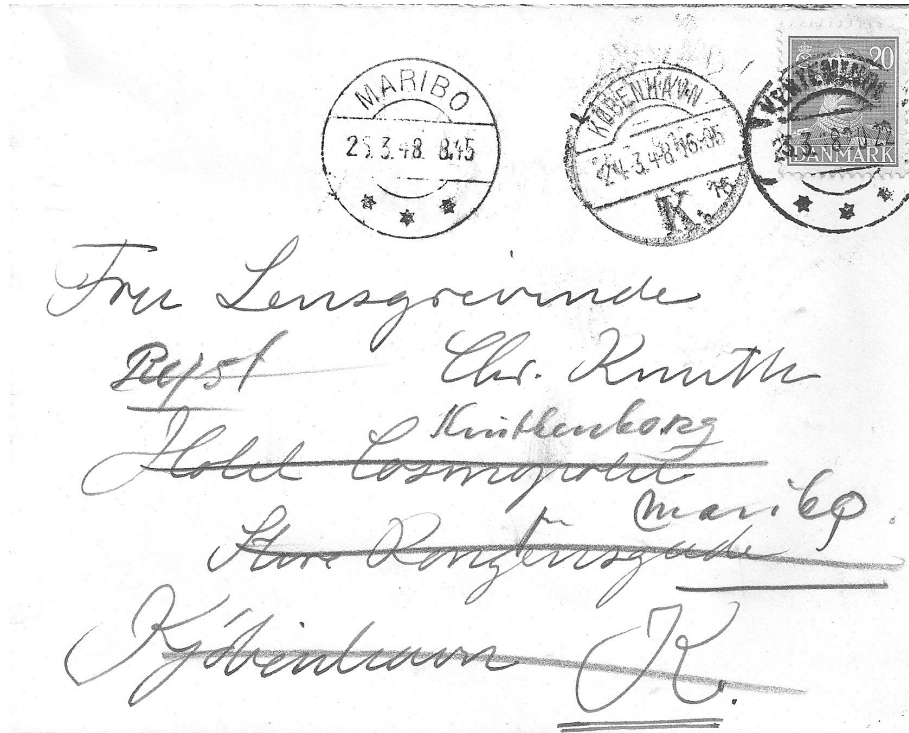 MARIBO
25.3.48. 8.45
KØBENHAVN
24.3.48 16-05
K.
20
DANMARK
23.3.
Fru Lensgrevinde
Chr. Knuth
Knuthenborg
Hotel Cosmopolit
Maribo.
Store Kongensgade
Kjøbenhavn K.